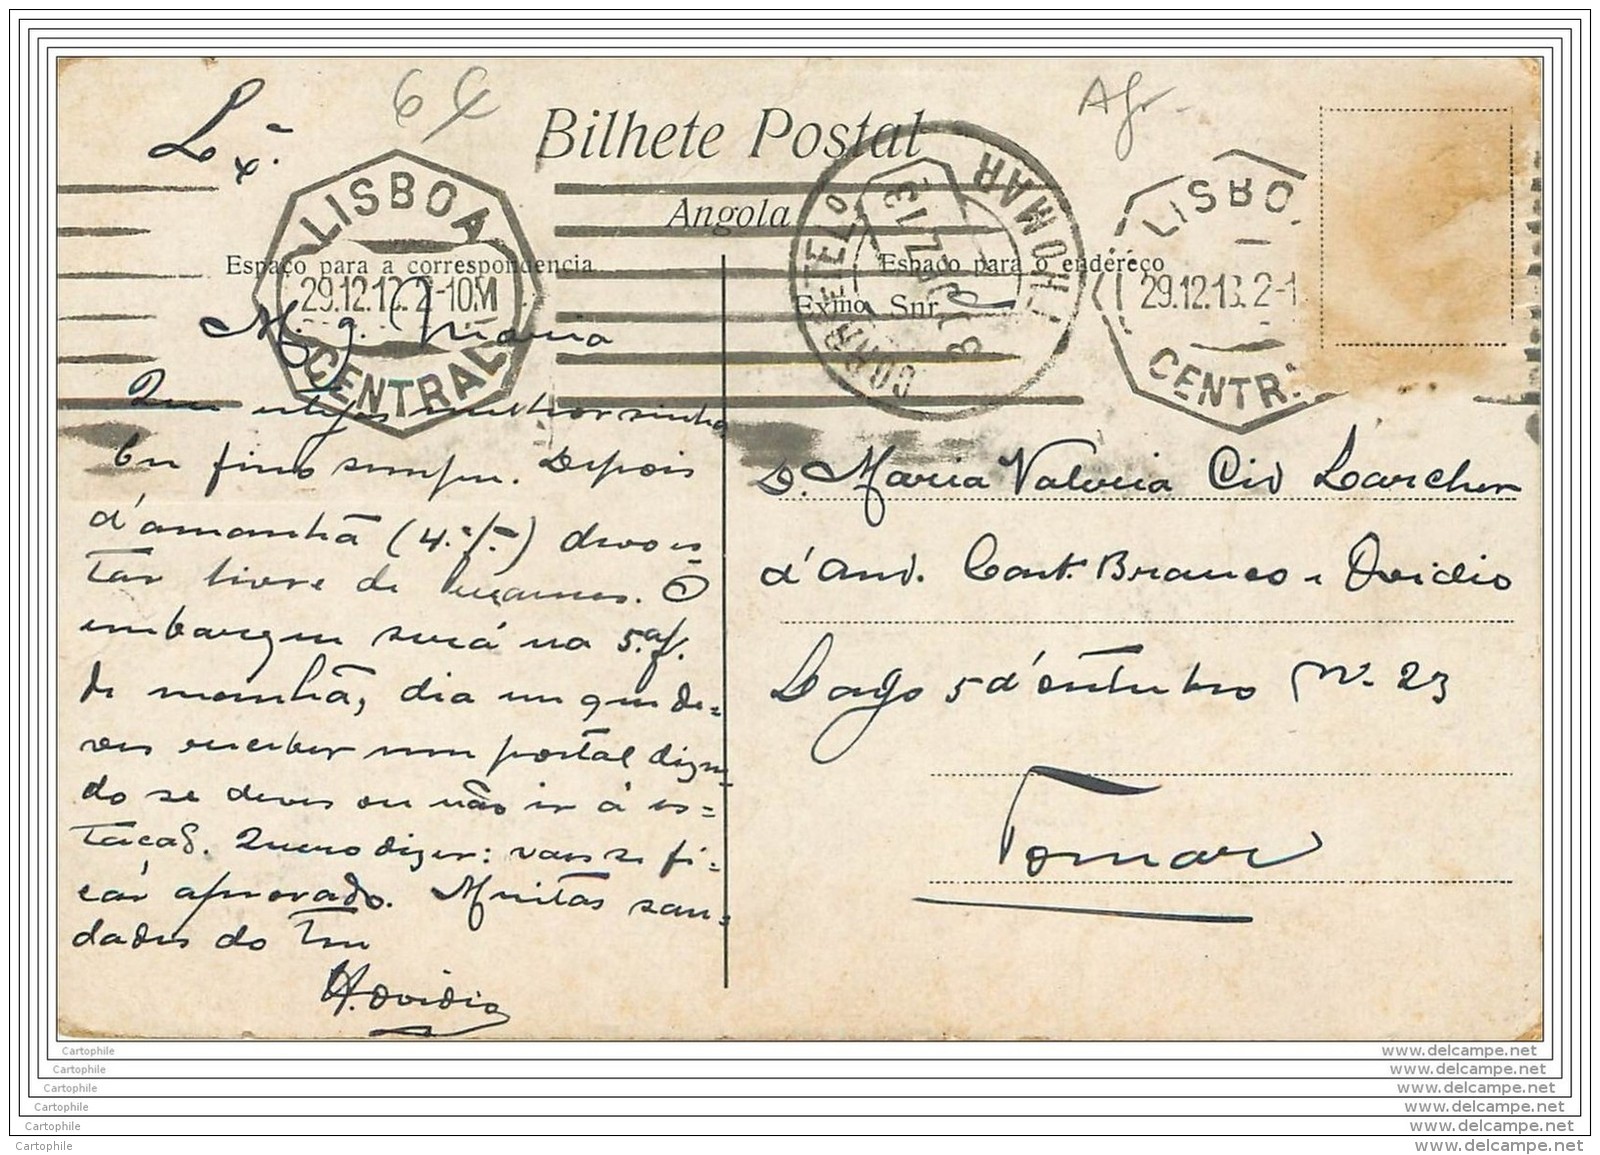 6 €
Afr-
Lx.ª
Bilhete Postal
Angola
LISBOA
29.12.13.2-10M
CENTRAL
THOMAR
CORREIO E TELO
31 DEZ 13
LISBO
29.12.13.2-1
CENTR
Espaço para a correspondencia
Espaço para o endereço
Exmo Snr.
M. q. Maria
Que estejas melhorsinha
Eu fino sempre. Depois
d'amanhã (4.ª f.ª) devo es-
tar livre de exames. O
embarque será na 5.ª f.
de manhã, dia em que de-
ves receber um postal dizen-
do se deves ou não ir á es-
tação. Quero dizer: vaes se fi-
car aprovado. Muitas sau-
dades do Teu
H. Ovidio
D. Maria Valeria Cid Larcher
d'And. Cast. Branco e Ovidio
Largo 5 d'outubro Nº 23
Tomar
Cartophile
www.delcampe.net
Cartophile
www.delcampe.net
Cartophile
www.delcampe.net
Cartophile
www.delcampe.net
Cartophile
www.delcampe.net
Cartophile
www.delcampe.net